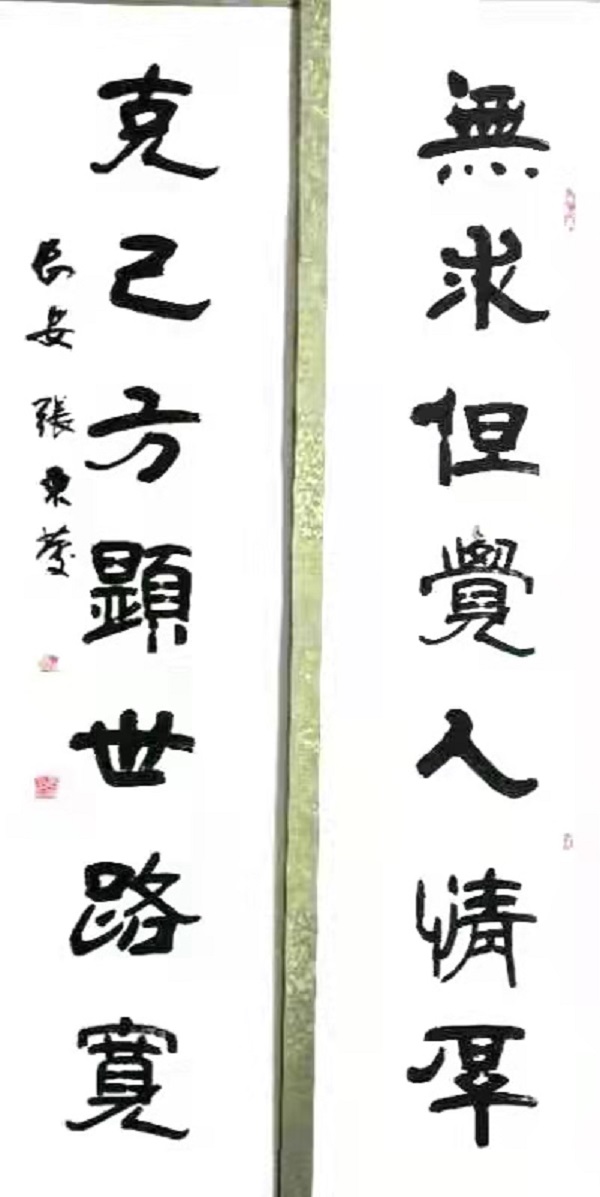 無求但覺人情厚
克己方顯世路寬
長安 張東慶